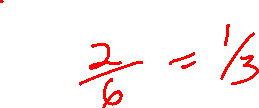 2/6 = 1/3